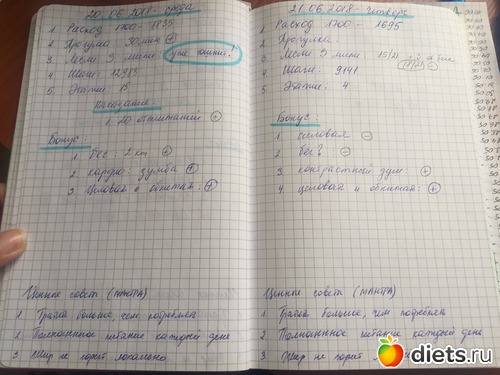 20.06.2018 - среда
1 Расход 1700 - 1835
2 Прогулка 30 мин +
3 Месли 3 мыс
4 Шаги: 12983
5 Этажи 15
Наказание
1. 20 отжиманий +
Бонус:
1 бег: 2 км +
2 кардио: зумба +
3 Целовая и обнятая: +
Ценные совет (МАНТРА)
1 Трать больше, чем потребляй
2 Полноценное питание каждый день
3 Жир не горит локально
21.06.2018 - четверг
1 Расход 1700 - 1695
2 Прогулка
3 15/21
4 Шаги: 9141
5 Этажи: 4
Бонус
1 силовая -
2 бег? -
3 контрастный душ: +
4. целовая и обнятая: +
Ценные совет (МАНТРА)
1 Трать больше, чем потребляй
2 Полноценное питание каждый день
3 Жир не горит
diets.ru